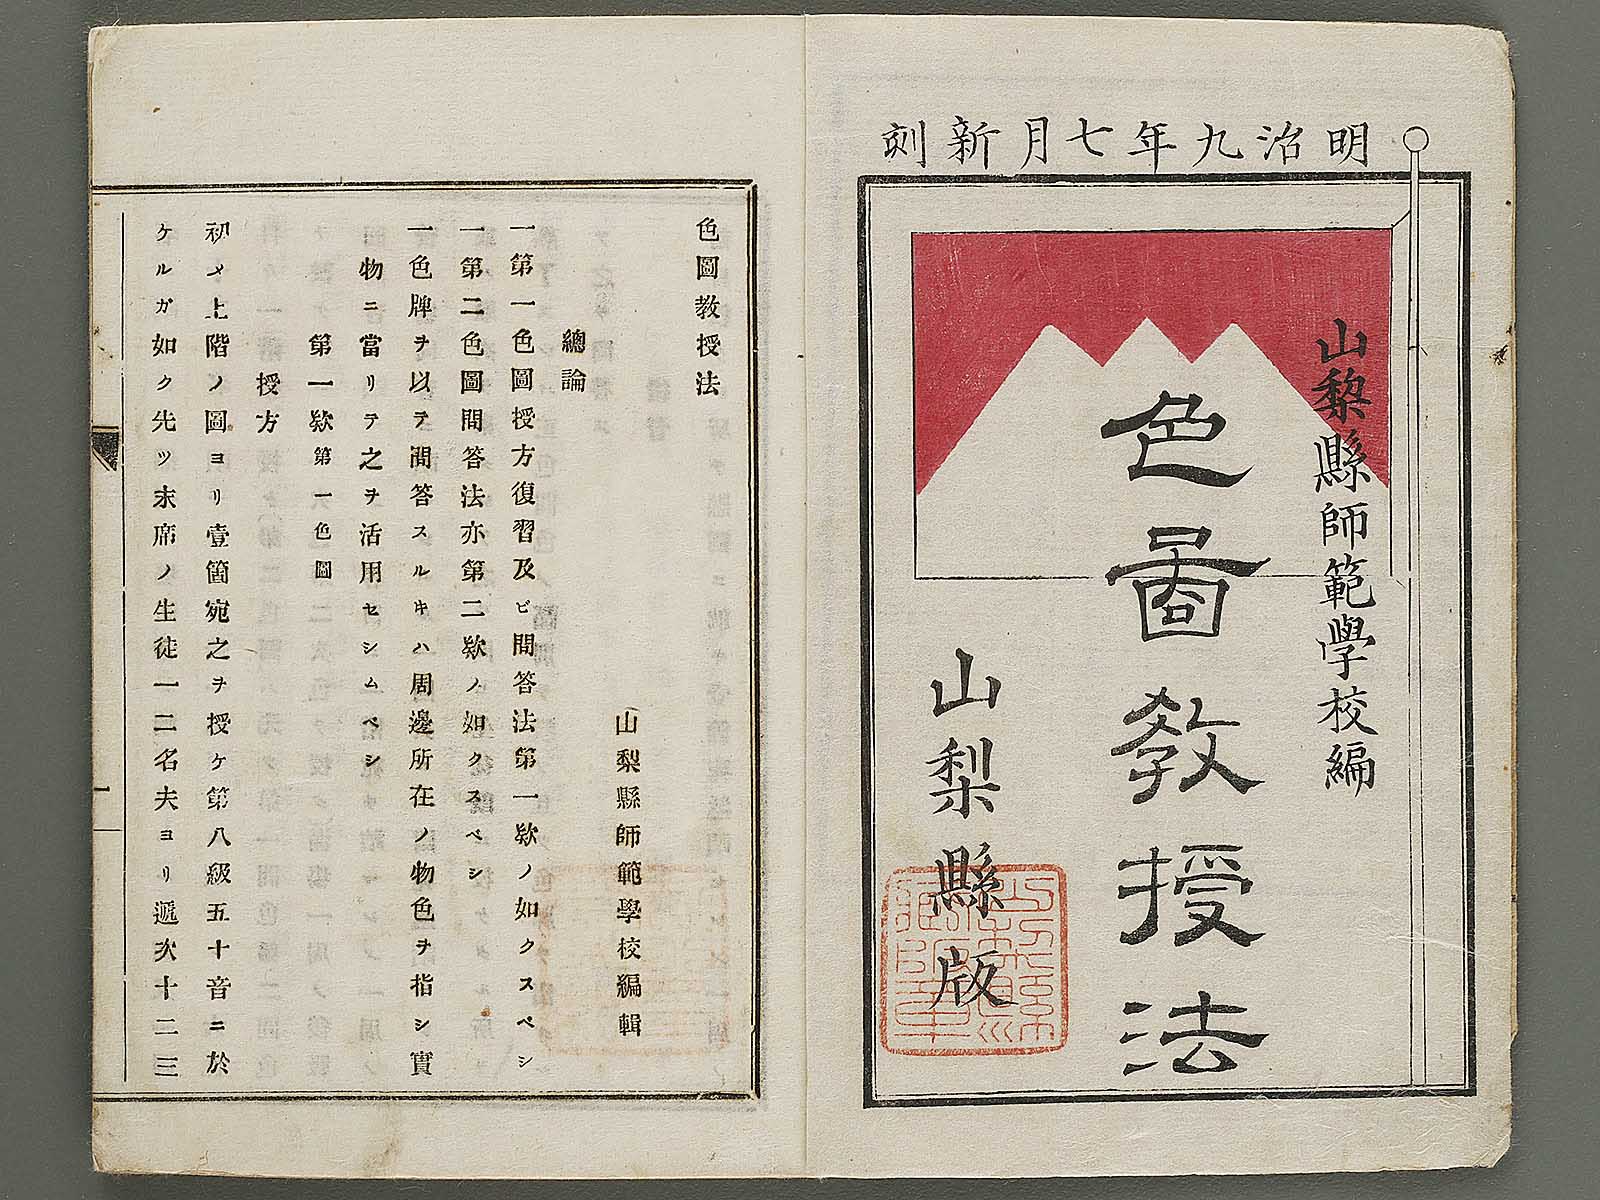 明治九年七月新刻
山梨縣師範學校編
色圖教授法
山梨縣版
色圖教授法
山梨縣師範學校編輯
總論
一第一色圖授方復習及ビ問答法第一欵ノ如クスベシ
一第二色圖問答法亦第二欵ノ如クスベシ
一色牌ヲ以テ問答スルキハ周邊所在ノ物色ヲ指シ實
物ニ當リテ之ヲ活用セシムベシ
第一欵第一色圖
授方
初メ上階ノ圖ヨリ壹箇宛之ヲ授ケ第八級五十音ニ於
ケルガ如ク先ツ末席ノ生徒一二名夫ヨリ遞次十二三
一